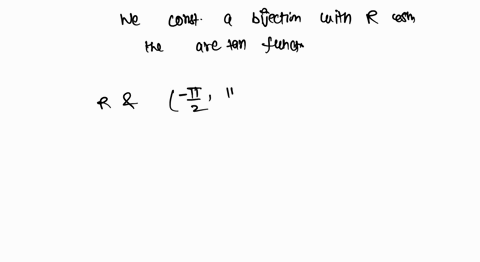 We const. a bijection with R
the arc tan funct
R & (-π/2, π